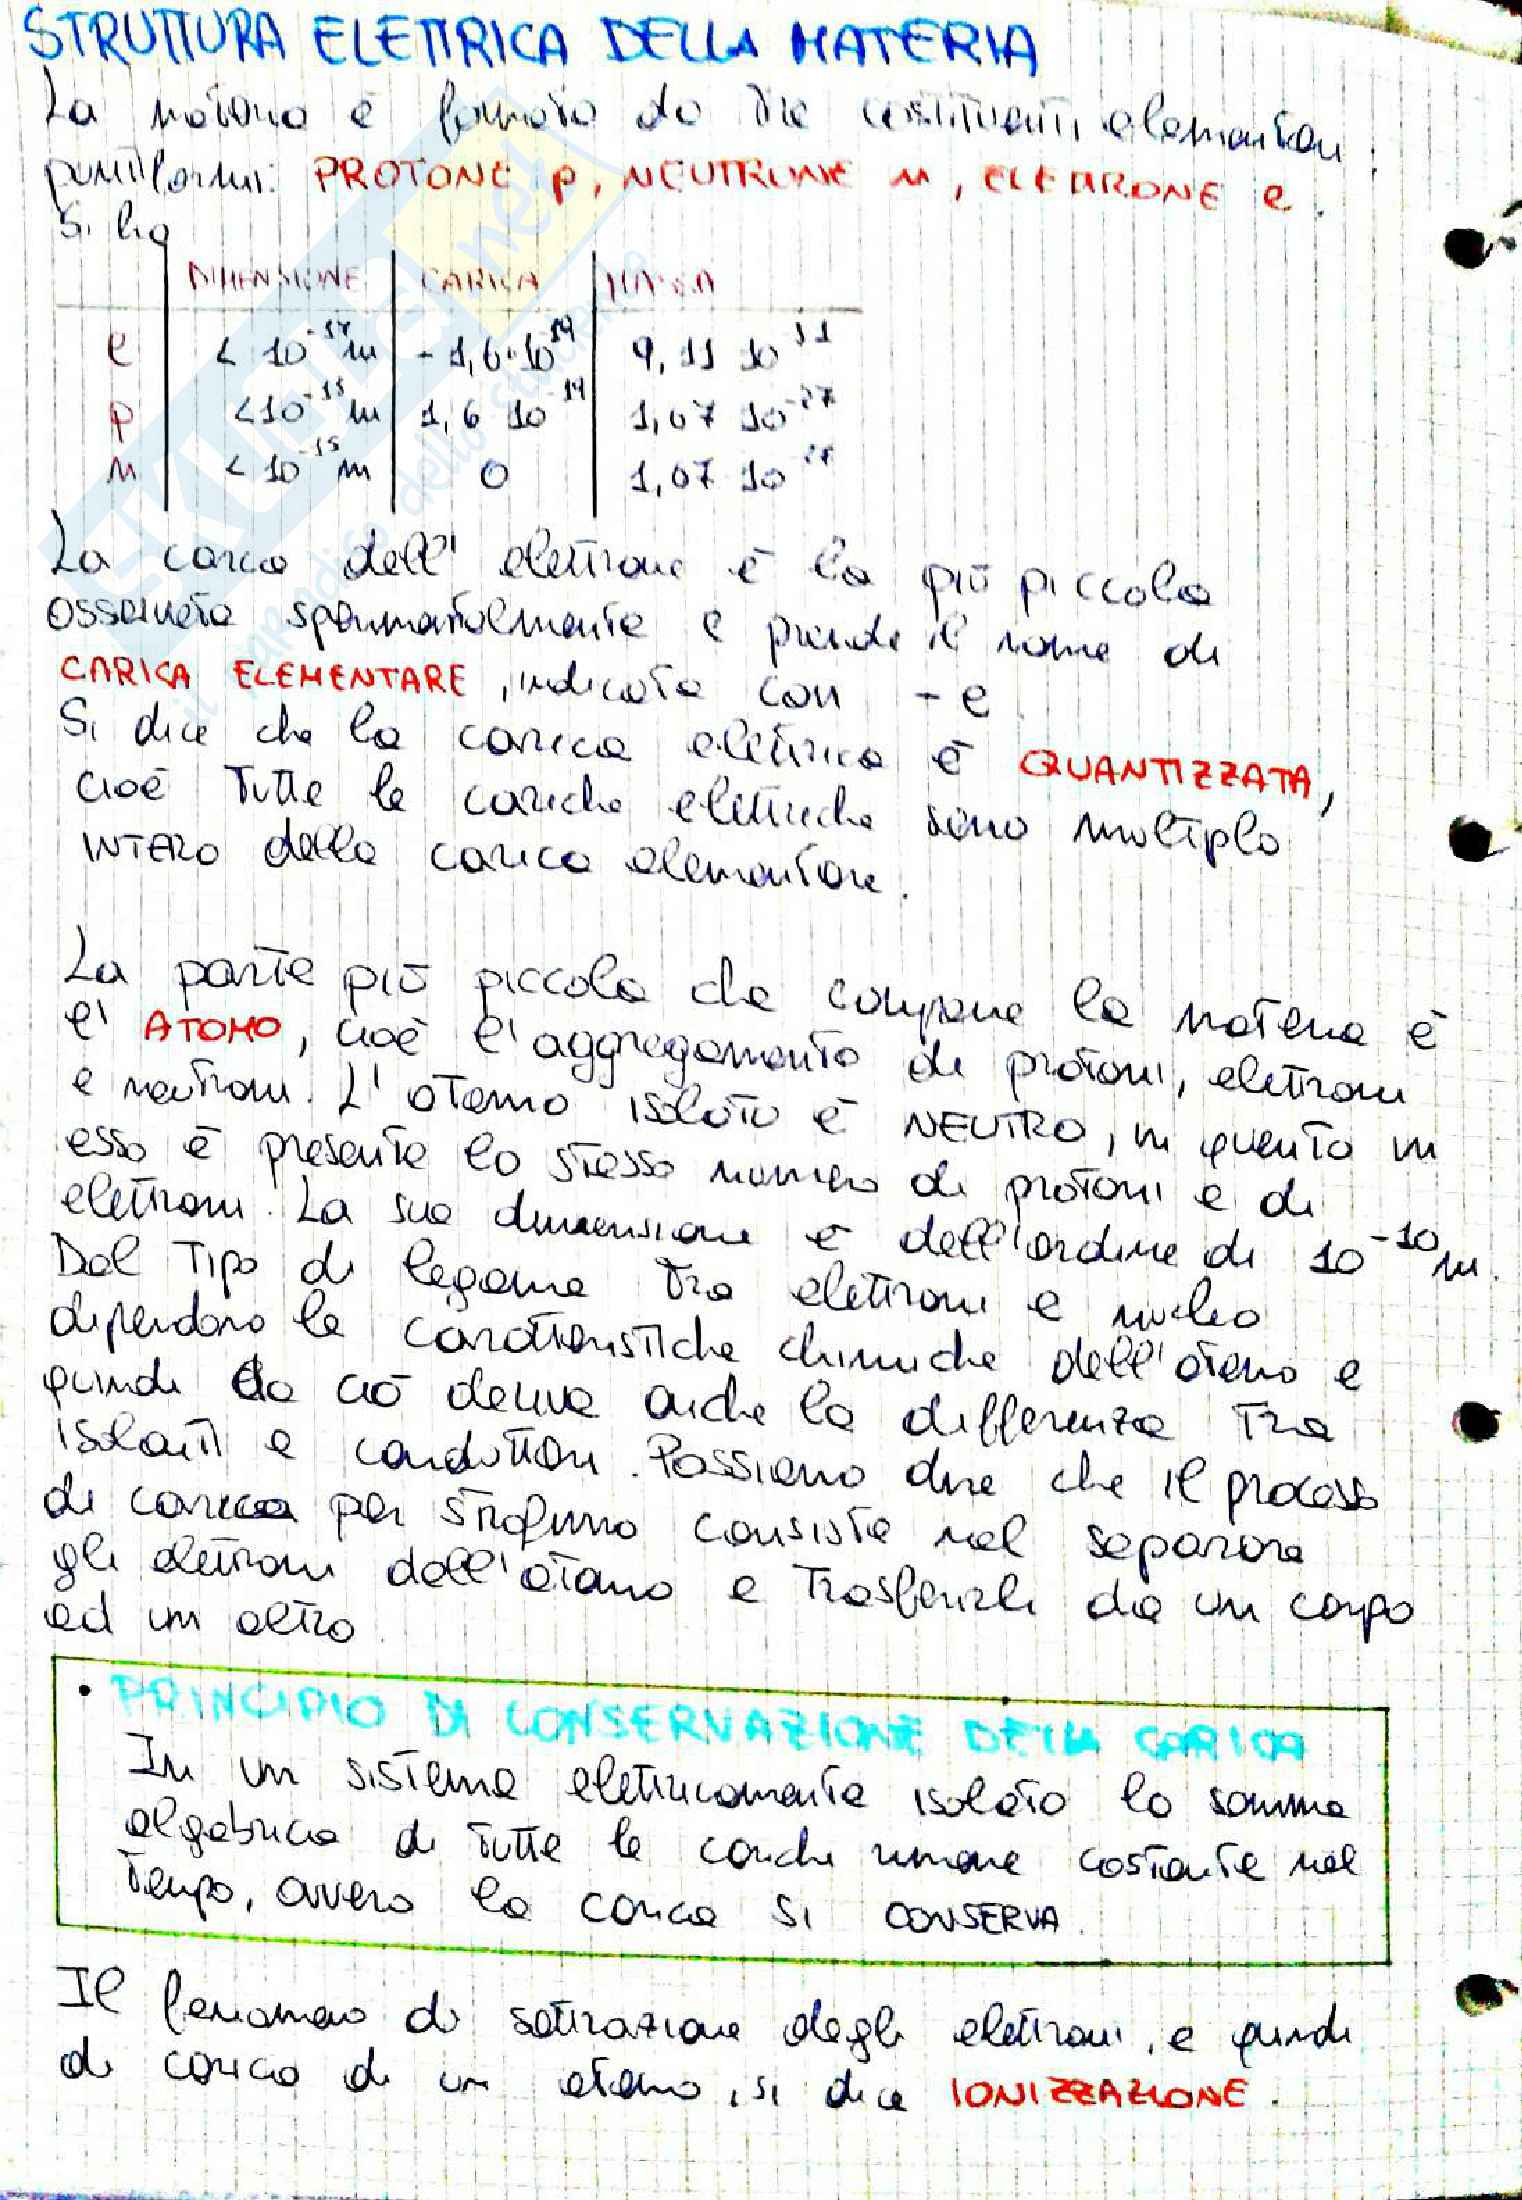 STRUTTURA ELETTRICA DELLA MATERIA
La materia è formata da tre costituenti elementari
puntiformi: PROTONE p, NEUTRONE n, ELETTRONE e.
Si ha
DIMENSIONE CARICA MASSA
e < 10^-17 m - 1,6·10^-19 9,11 10^-31
p < 10^-15 m 1,6 10^-19 1,67 10^-27
n < 10^-15 m 0 1,67 10^-27
La carica dell'elettrone è la più piccola
osservata sperimentalmente e prende il nome di
CARICA ELEMENTARE, indicata con -e
Si dice che la carica elettrica è QUANTIZZATA,
cioè tutte le cariche elettriche sono multiplo
INTERO della carica elementare.
La parte più piccola che compone la materia è
l'ATOMO, cioè l'aggregamento di protoni, elettroni
e neutroni. L'atomo isolato è NEUTRO, in quanto in
esso è presente lo stesso numero di protoni e di
elettroni. La sua dimensione è dell'ordine di 10^-10 m.
Dal tipo di legame tra elettroni e nucleo
dipendono le caratteristiche chimiche dell'atomo e
quindi da ciò deriva anche la differenza tra
isolanti e conduttori. Possiamo dire che il processo
di carica per strofinio consiste nel separare
gli elettroni dall'atomo e trasferirli da un corpo
ad un altro
• PRINCIPIO DI CONSERVAZIONE DELLA CARICA
In un sistema elettricamente isolato la somma
algebrica di tutte le cariche rimane costante nel
tempo, ovvero la carica si CONSERVA.
Il fenomeno di sottrazione degli elettroni, e quindi
di carica di un atomo, si dice IONIZZAZIONE.
SKUOLA.net
il paradiso dello studente